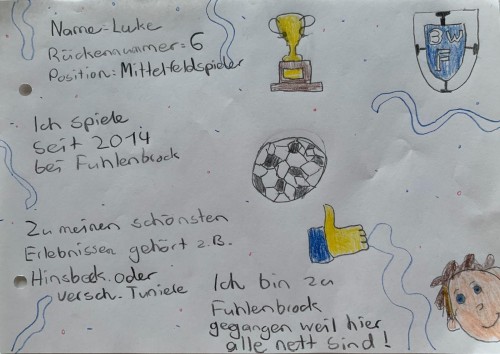 Name-Luke
Rückennummer: 6
Position: Mittelfeldspieler
BW
F
Ich spiele
seit 2014
bei Fuhlenbrock
Zu meinen schönsten
Erlebnissen gehört z.B.
Hinsbeck oder
versch. Tuniele
Ich bin zu
Fuhlenbrock
gegangen weil hier
alle nett sind!